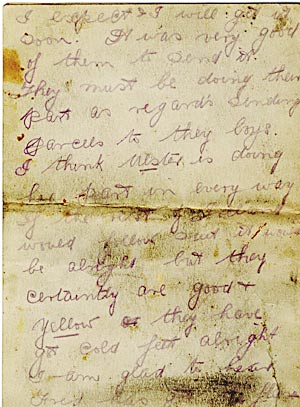 I expect I will get it
soon. It was very good
of them to send it.
They must be doing their
part as regards sending
parcels to they boys.
I think Ulster is doing
her part in every way
If the rest of
would follow suit it would
be alright but they
certainly are good +
yellow they have
got cold feet alright
I am glad to hear
Fred has